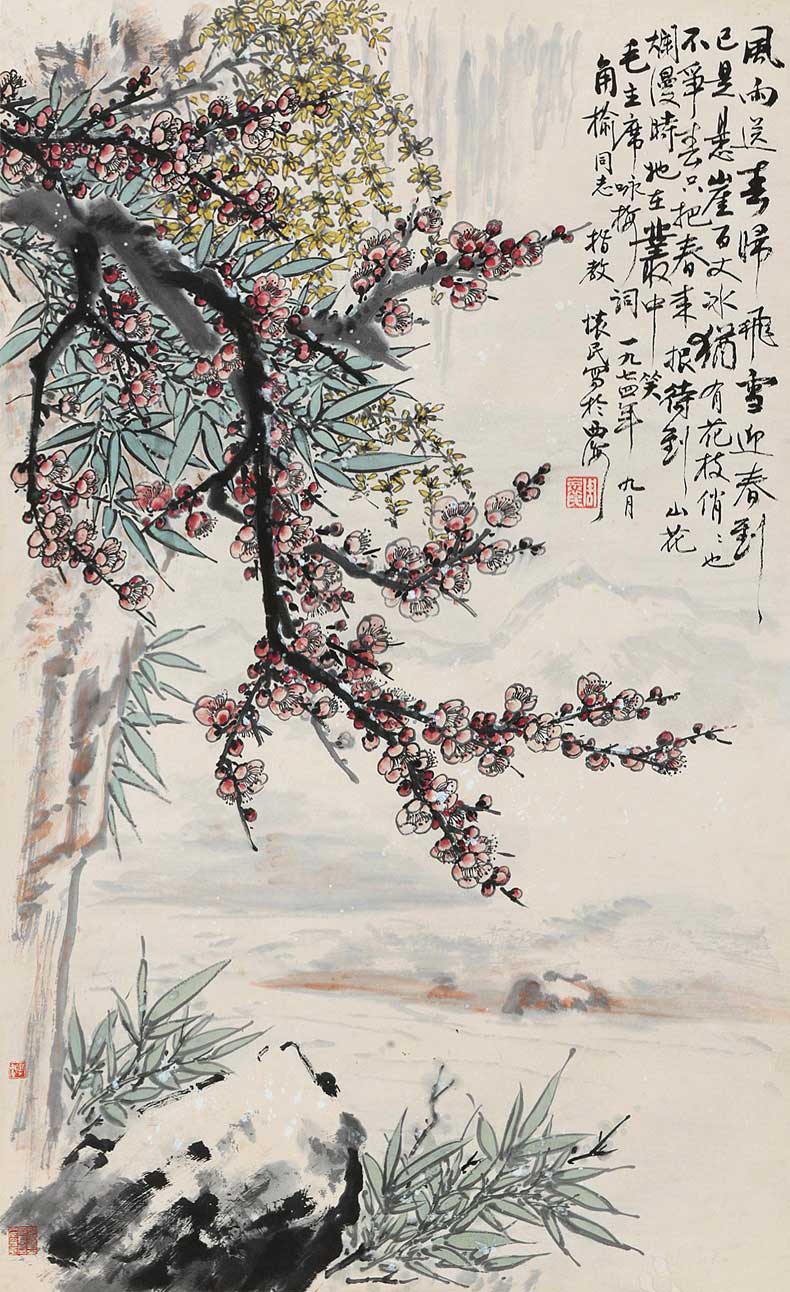 風雨送春歸飛雪迎春到
已是悬崖百丈冰猶有花枝俏〻也
不爭春只把春来报待到山花
爛漫時她在叢中笑
毛主席咏梅词一九七四年九月
角榆同志指教 懷民写於西